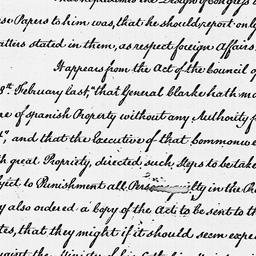 se Papers to him was, that he should report only
atters stated in them, as respect foreign Affairs.
It appears from the Act of the Council of
8th February last, "that General Clarke hath ma
re of Spanish Property without any Authority f
t", and that the Executive of that commonwe
h great Propriety, directed such Steps to be take
bject to Punishment all Pers guilty in the Pr
y also ordered a Copy of the Act to be sent to th
tes, that they might if it should seem expe